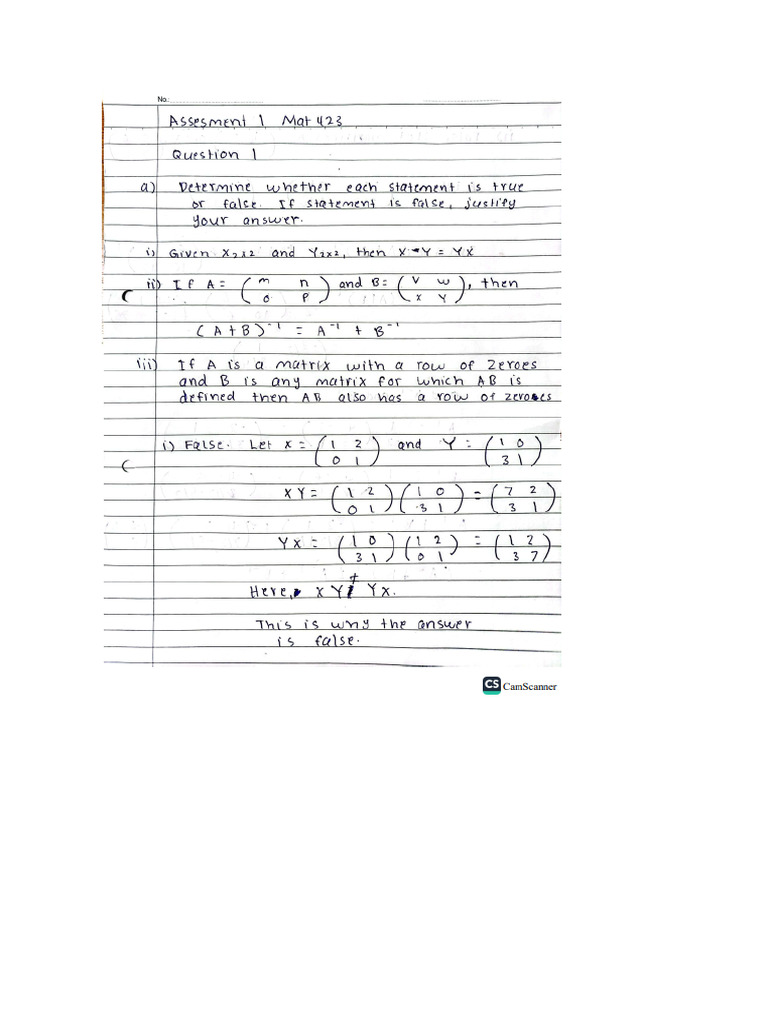 No:
Assesment 1 Mat 423
Question 1
a) Determine whether each statement is true
or false. If statement is false, justify
your answer.
i) Given X₂ₓ₂ and Y₂ₓ₂, then XY = YX
ii) If A = (m n / o p) and B = (v w / x y), then
(A + B)⁻¹ = A⁻¹ + B⁻¹
iii) If A is a matrix with a row of zeroes
and B is any matrix for which AB is
defined then AB also has a row of zeroes
i) False. Let X = (1 2 / 0 1) and Y = (1 0 / 3 1)
XY = (1 2 / 0 1) (1 0 / 3 1) = (7 2 / 3 1)
YX = (1 0 / 3 1) (1 2 / 0 1) = (1 2 / 3 7)
Here, XY ≠ YX.
This is why the answer
is false.
CS CamScanner